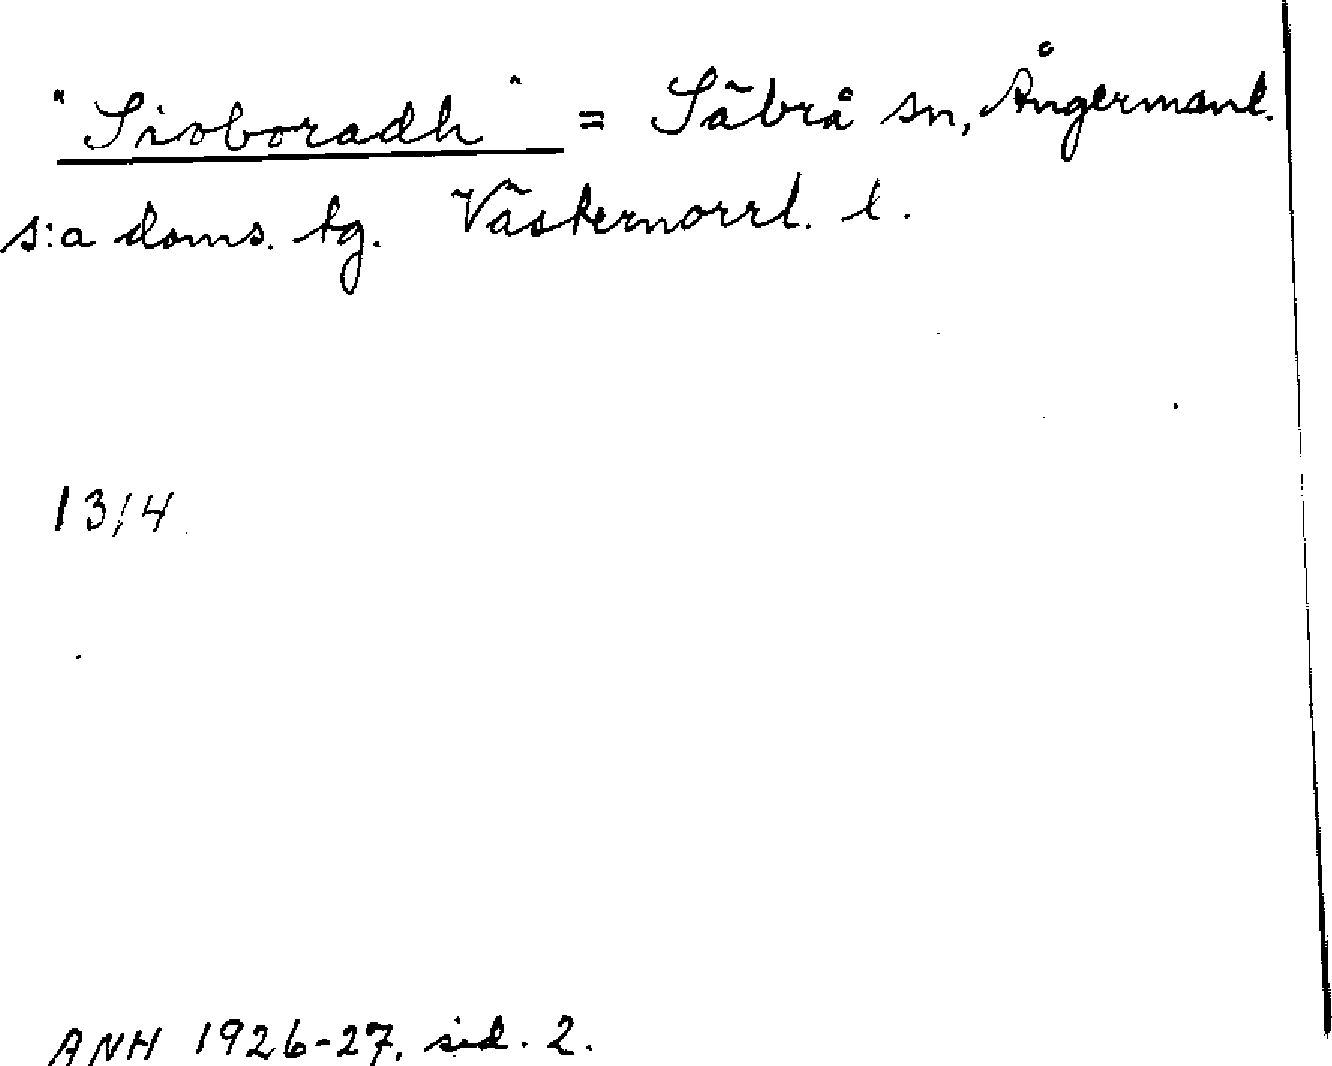 "Sioboradh" = Säbrå sn, Ångermanl.
s:a doms. tg. Västernorrl. l.
1314
ANH 1926-27, sid. 2.